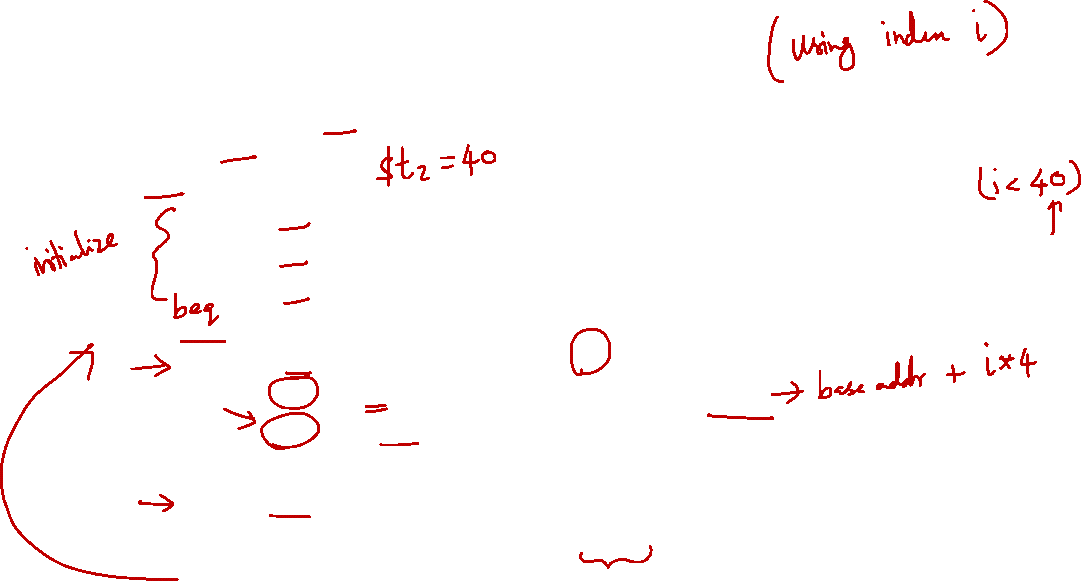 (using index i)
$t₂ = 40
(i < 40)
initialize
beq
→ base addr + i*4